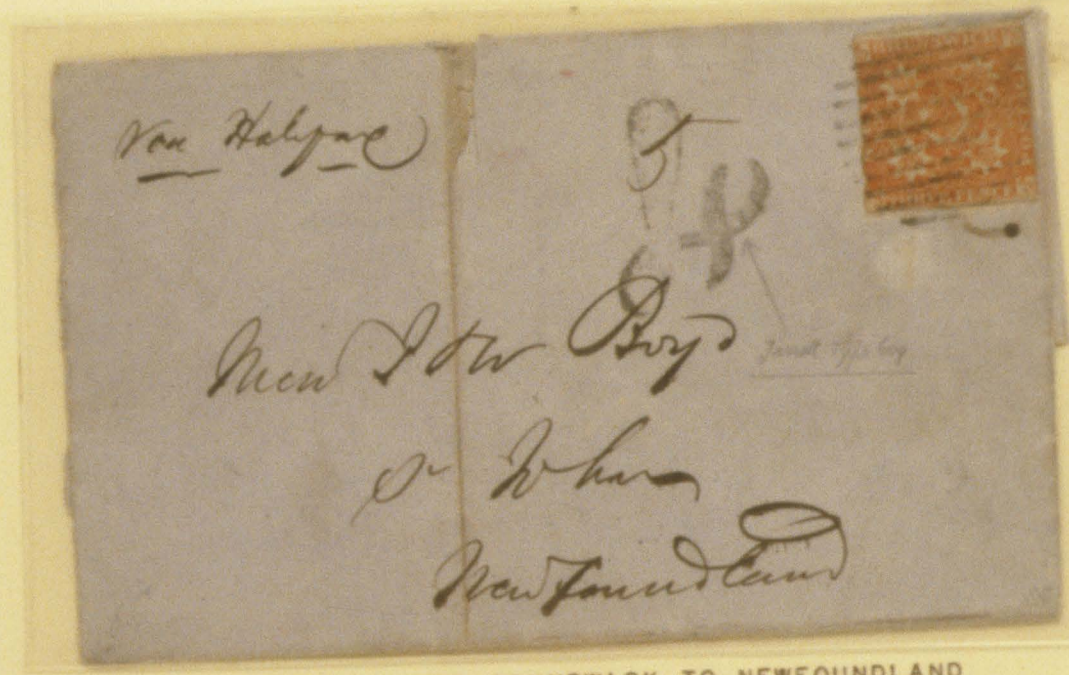 Via Halifax
5
4
Messrs J & W Boyd
St Johns
Newfoundland
TO NEWFOUNDLAND